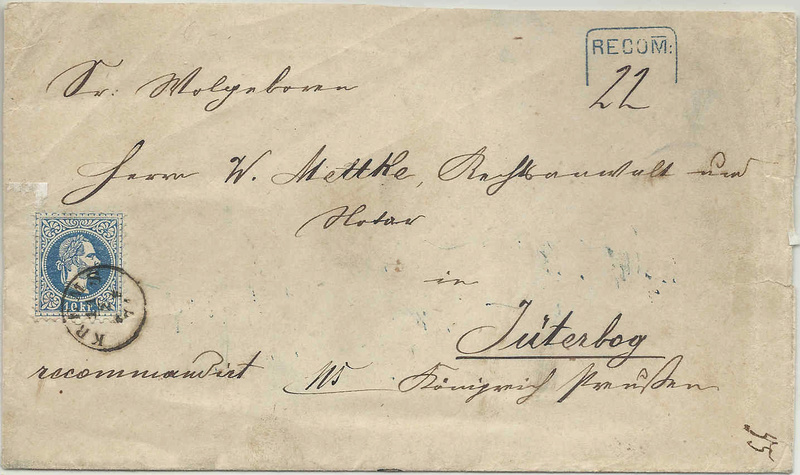 RECOM:
22
Sr: Wolgeboren
Herrn W. Mettke, Rechtsanwalt und
Notar
in
10 Kr.
Jüterbog
recommandirt Königreich Preußen